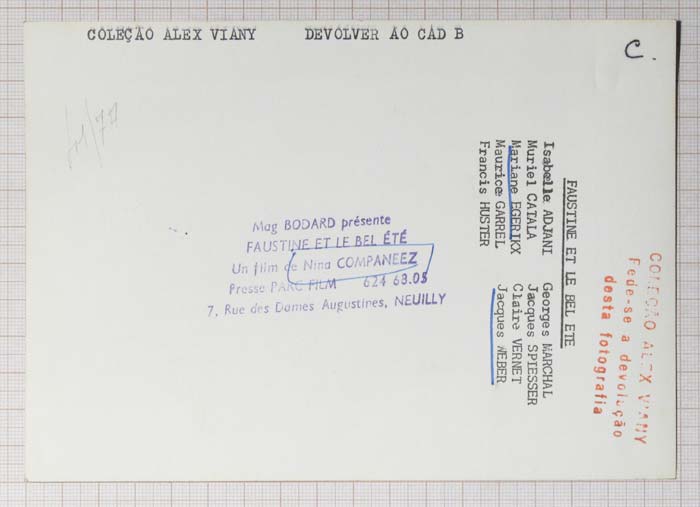 COLEÇÃO ALEX VIANY DEVOLVER AO CAD B
C.
Mag BODARD présente
FAUSTINE ET LE BEL ÉTÉ
Un film de Nina COMPANEEZ
Presse PARC FILM 624 63.05
7, Rue des Dames Augustines, NEUILLY
FAUSTINE ET LE BEL ETE
Isabelle ADJANI Georges MARCHAL
Muriel CATALA Jacques SPIESSER
Mariane EGERIKX Claire VERNET
Maurice GARREL Jacques WEBER
Francis HUSTER
COLEÇÃO ALEX VIANY
Pede-se a devolução
desta fotografia